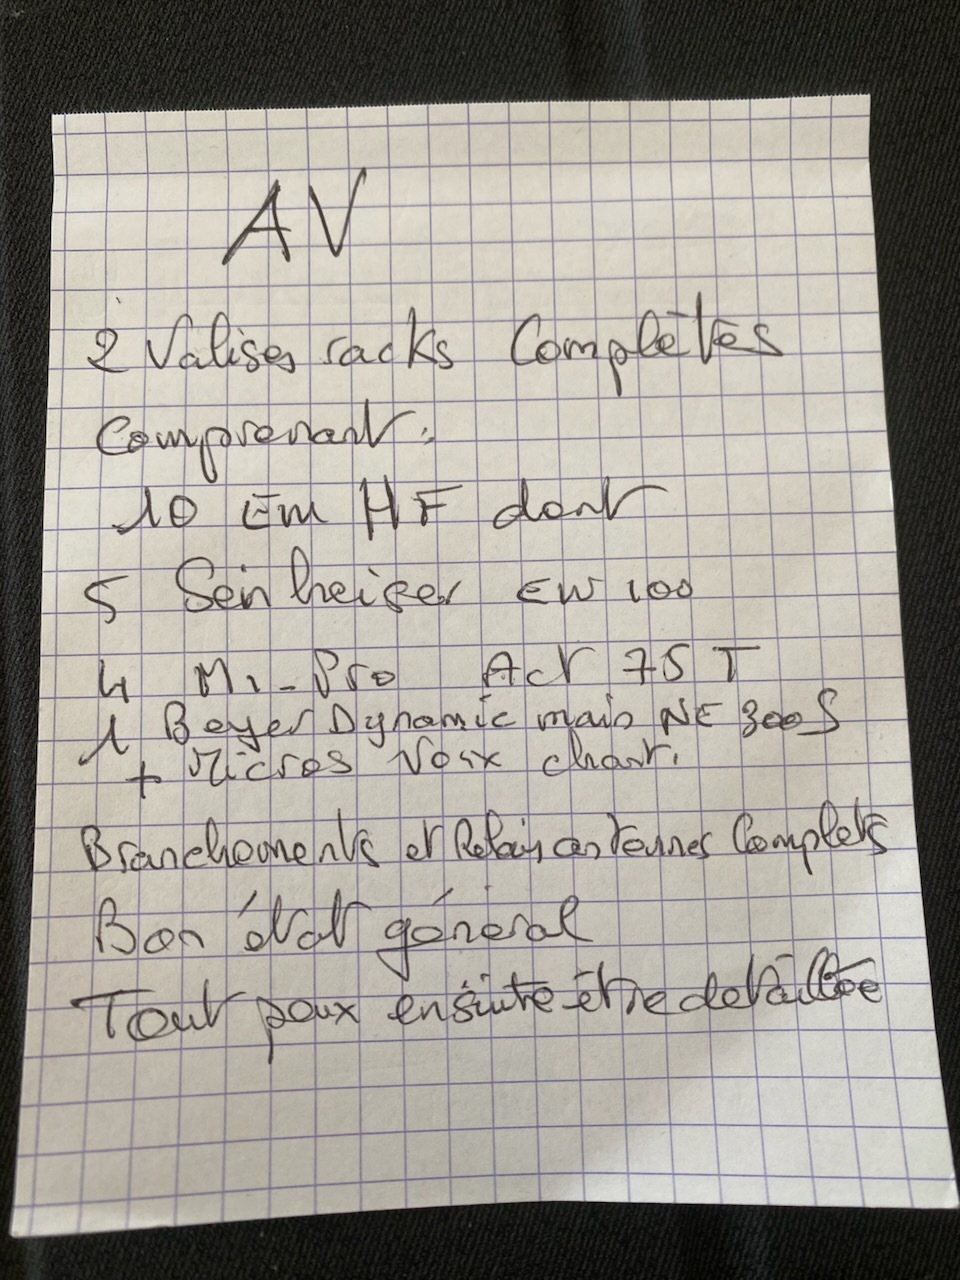 AV
2 Valises racks Complètes
Comprenant :
10 Em HF dont
5 Seinheiser EW 100
4 Mi-Pro Act 75 T
1 Beyer Dynamic main NE 300 S
+ Micros Voix chant.
Branchements et Relais antennes Complets
Bon état général
Tout peux ensuite être detaillée